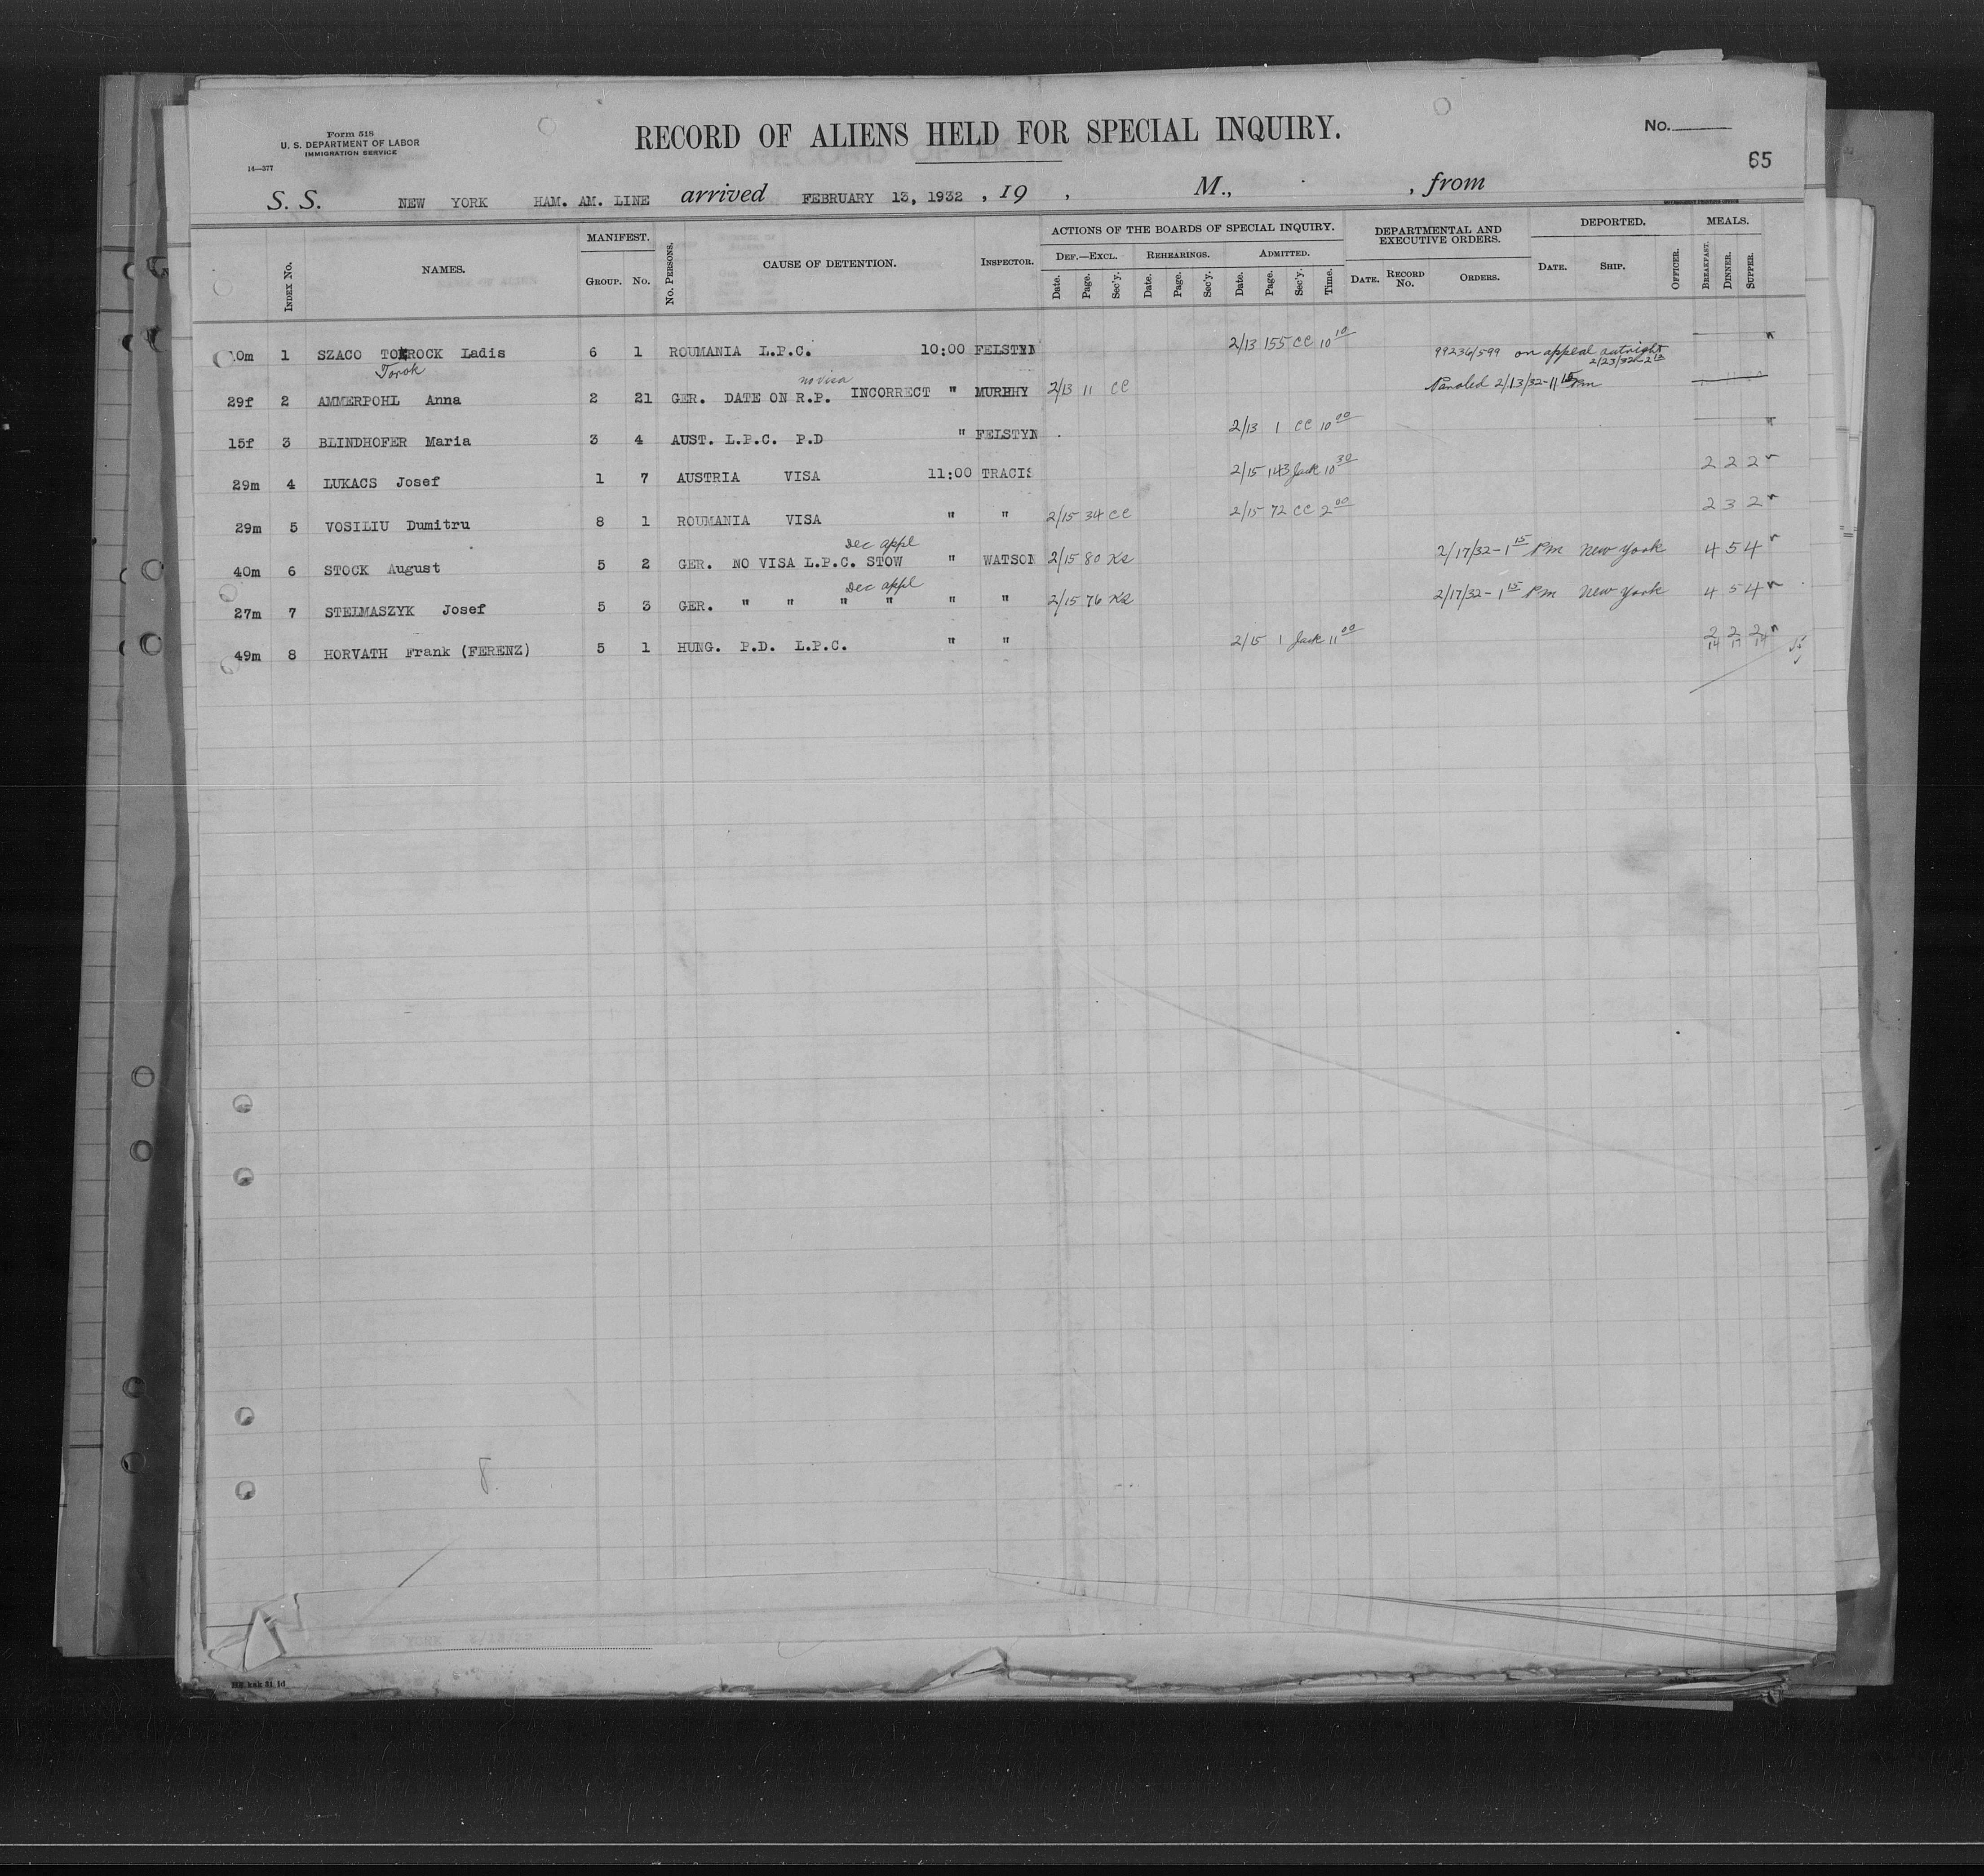 Form 518
U. S. DEPARTMENT OF LABOR
IMMIGRATION SERVICE
14—377
RECORD OF ALIENS HELD FOR SPECIAL INQUIRY.
No.
65
S. S. NEW YORK HAM. AM. LINE arrived FEBRUARY 13, 1932 , 19 , M., , from
INDEX No. NAMES. MANIFEST. GROUP. No. No. PERSONS. CAUSE OF DETENTION. INSPECTOR. ACTIONS OF THE BOARDS OF SPECIAL INQUIRY. DEF.—EXCL. Date. Page. Sec'y. REHEARINGS. Date. Page. Sec'y. ADMITTED. Date. Page. Sec'y. Time. DEPARTMENTAL AND EXECUTIVE ORDERS. DATE. RECORD No. ORDERS. DEPORTED. DATE. SHIP. OFFICER. MEALS. BREAKFAST. DINNER. SUPPER.
10m 1 SZACO TOKROCK Ladis 6 1 ROUMANIA L.P.C. 10:00 FELSTYN 2/13 155 CC 10 10 99236/599 on appeal outright
Torok 2/23/32
no visa
29f 2 AMMERPOHL Anna 2 21 GER. DATE ON R.P. INCORRECT " MURPHY 2/13 11 CC 2/13/32-11 15
15f 3 BLINDHOFER Maria 3 4 AUST. L.P.C. P.D " FELSTYN 2/13 1 CC 10 00
29m 4 LUKACS Josef 1 7 AUSTRIA VISA 11:00 TRACIS 2/15 143 Jack 10 30 2 2 2
29m 5 VOSILIU Dumitru 8 1 ROUMANIA VISA " " 2/15 34 CC 2/15 72 CC 2 00 2 3 2
Dec appl
40m 6 STOCK August 5 2 GER. NO VISA L.P.C. STOW " WATSON 2/15 80 KS 2/17/32-1 15 Pm New York 4 5 4
Dec appl
27m 7 STELMASZYK Josef 5 3 GER. " " " " " " 2/15 76 KS 2/17/32-1 15 Pm New York 4 5 4
49m 8 HORVATH Frank (FERENZ) 5 1 HUNG. P.D. L.P.C. " " 2/15 1 Jack 11 00 2 2 2
14 17 14
8